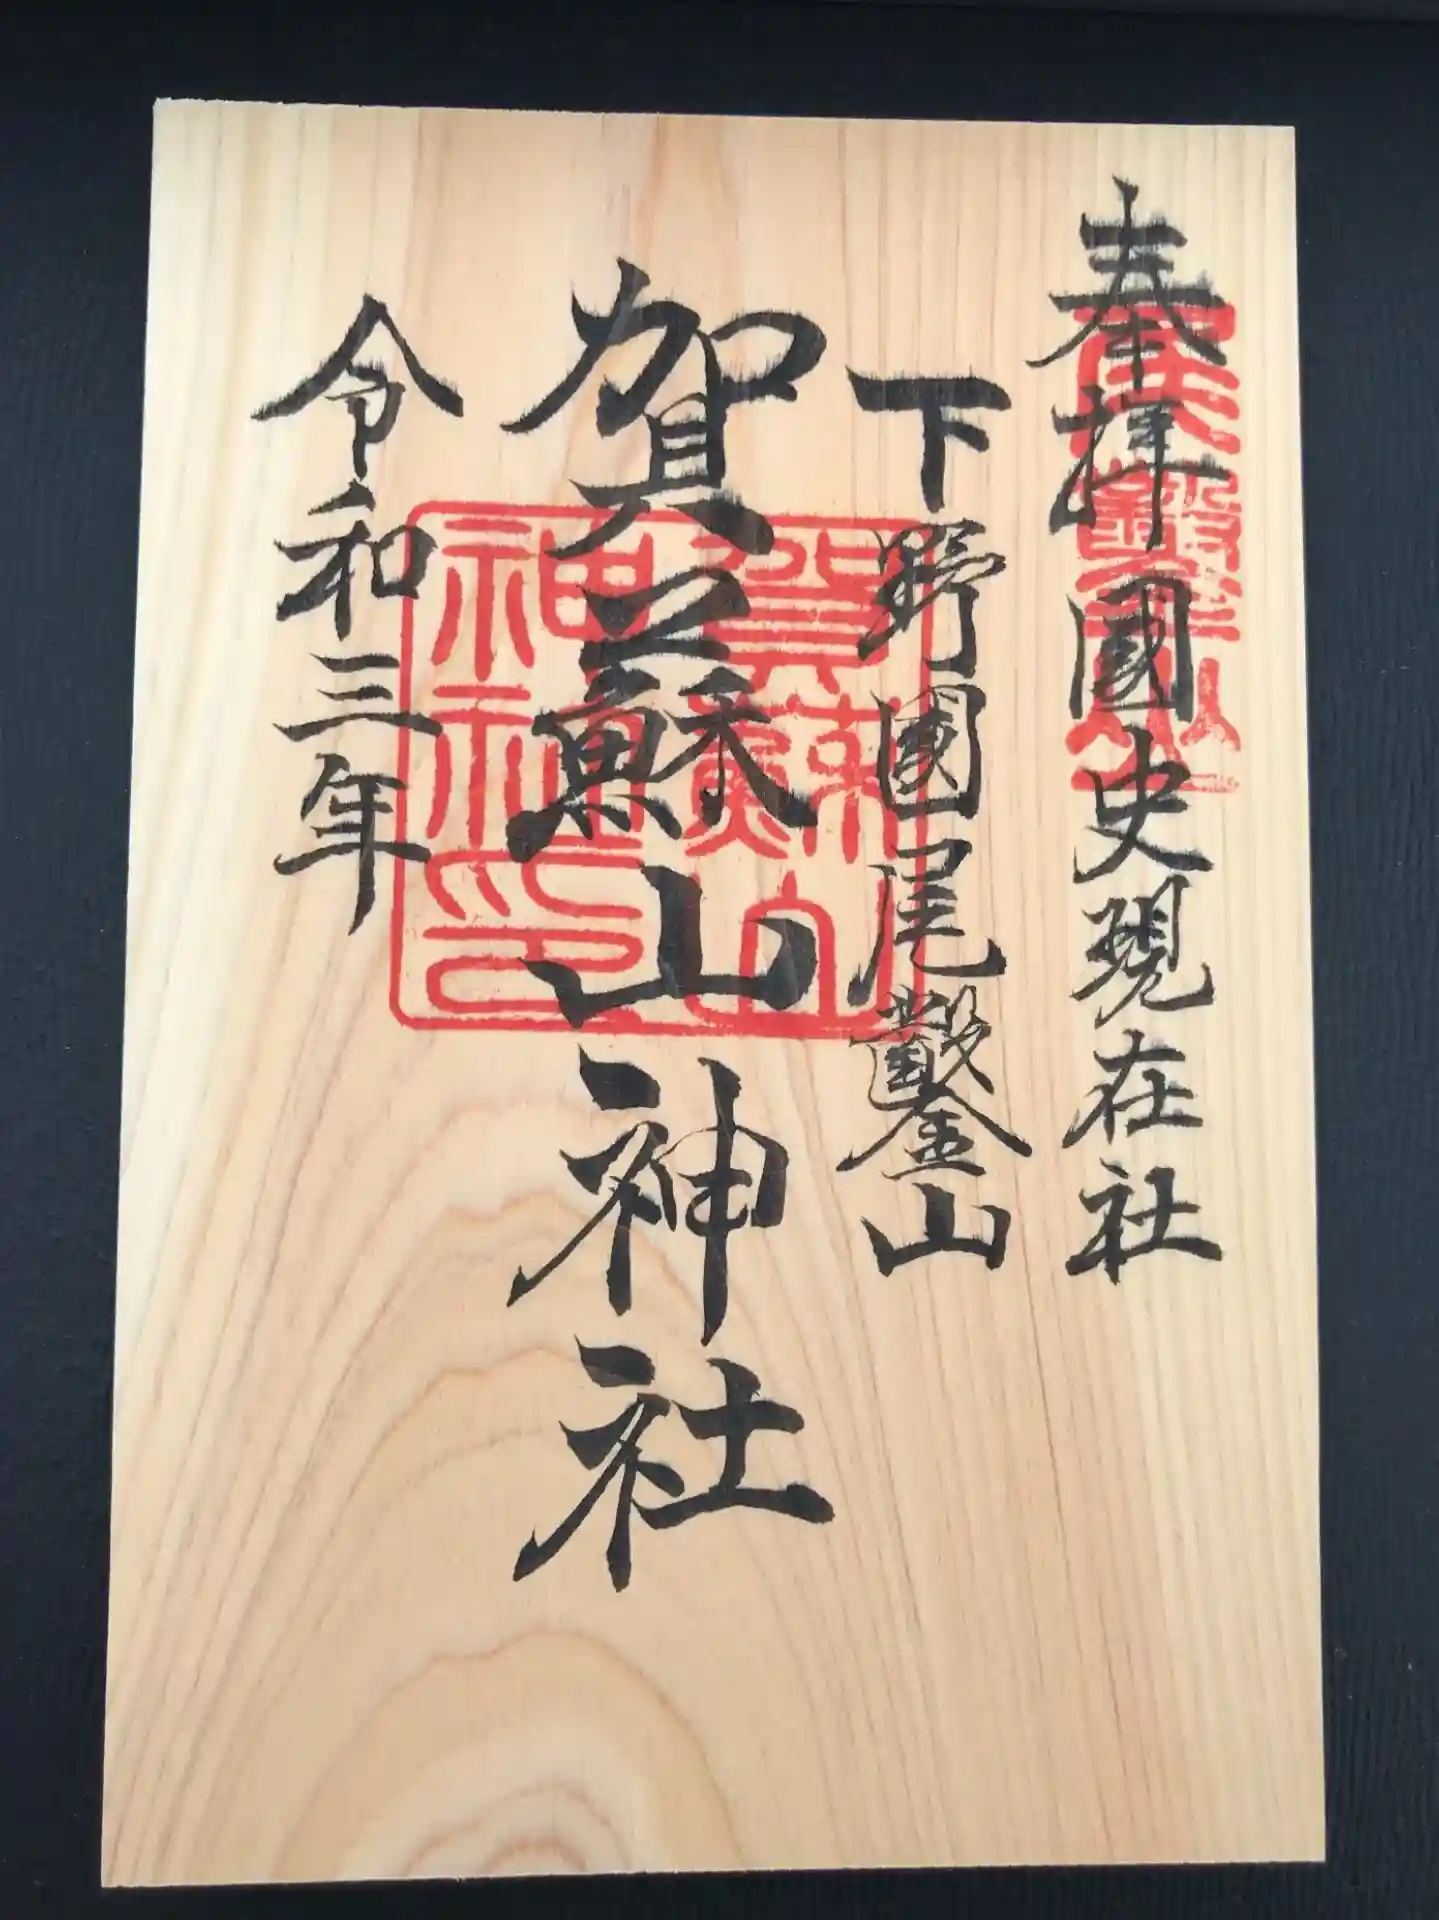 奉拝 國史現在社
下野國尾鑿山
賀蘓山神社
令和三年
尾鑿山
賀蘓山神社印